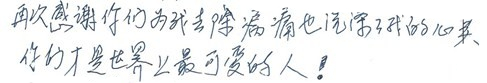 再次感谢你们为我去除病痛也洗涤了我的心灵
你们才是世界上最可爱的人！